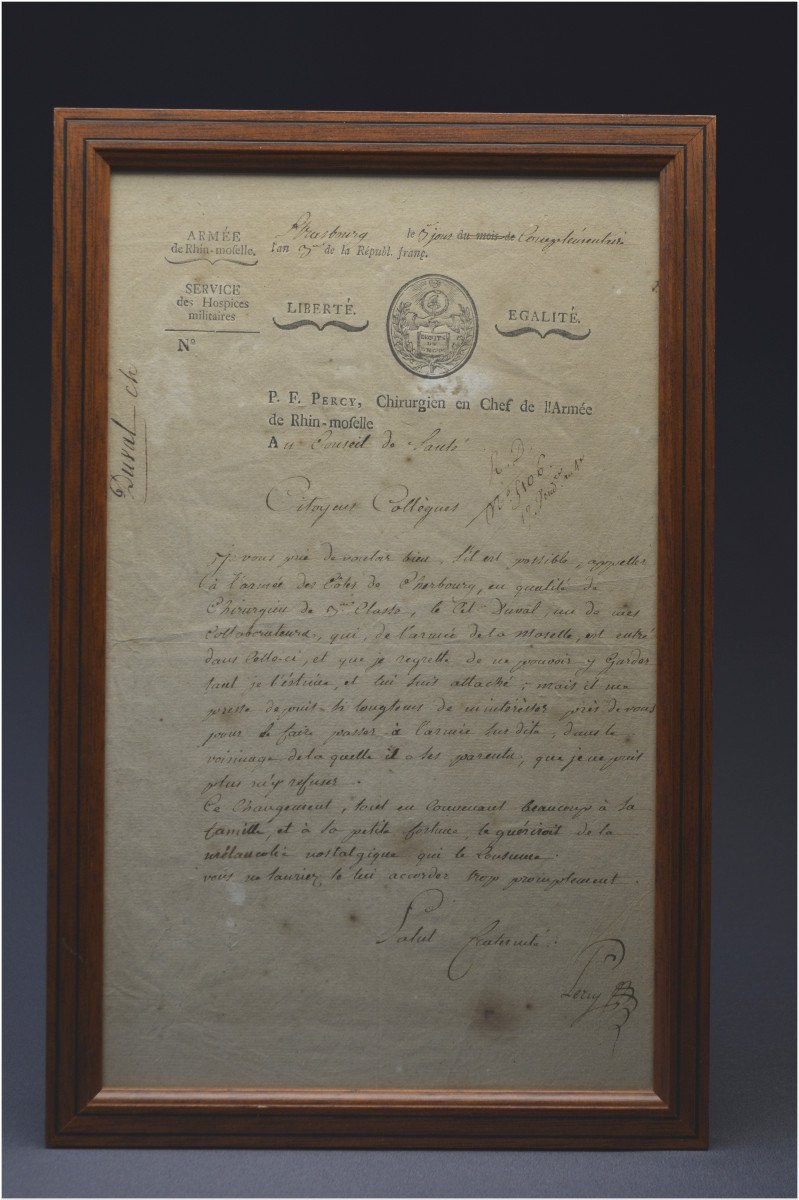 ARMÉE
de Rhin-moselle.
SERVICE
des Hospices
militaires
N°
Strasbourg le jour du mois de Complémentaire
l'an de la Républ. franç.
LIBERTÉ.
DROITS
DE
EGALITÉ.
P. F. PERCY, Chirurgien en Chef de l'Armée
de Rhin-moselle
Au Conseil de Santé
Duval ch
N° 5106.
Citoyens Collègues
Je vous prie de vouloir bien, s'il est possible, appeller
à l'armée des Côtes de Cherbourg, en qualité de
Chirurgien de Classe, le Duval, un de mes
Collaborateurs, qui, de l'armée de la Moselle, est entré
dans celle-ci, et que je regrette de ne pouvoir y garder
tant je l'estime, et lui suis attaché; mais il me
presse depuis si longtems de m'intéresser près de vous
pour le faire passer à l'armée sus dite, dans le
voisinage de la quelle il a ses parents, que je ne puis
plus m'y refuser.
Ce changement, tout en convenant beaucoup à sa
famille, et à sa petite fortune, le guériroit de la
mélancolie nostalgique qui le consume.
vous ne sauriez le lui accorder trop promptement.
Salut fraternité.
Percy